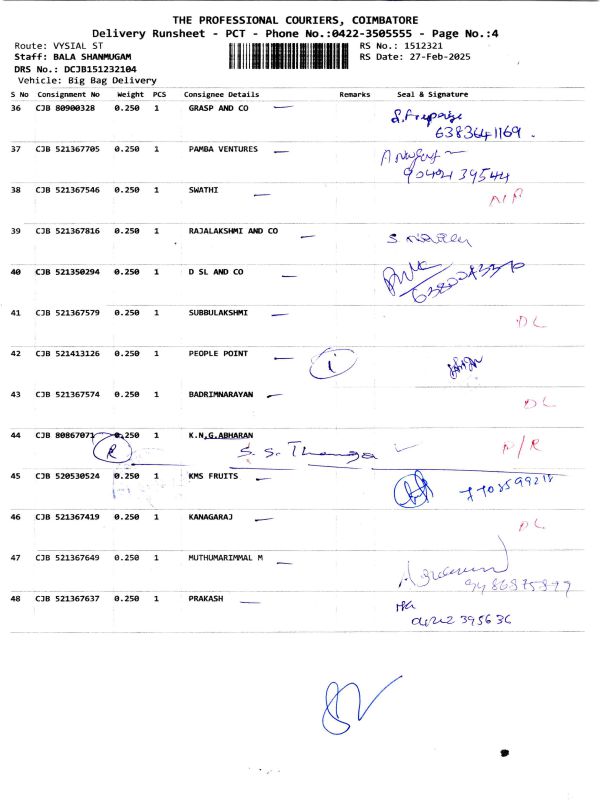 THE PROFESSIONAL COURIERS, COIMBATORE
Delivery Runsheet - PCT - Phone No.:0422-3505555 - Page No.:4
Route: VYSIAL ST RS No.: 1512321
Staff: BALA SHANMUGAM RS Date: 27-Feb-2025
DRS No.: DCJB151232104
Vehicle: Big Bag Delivery
S No Consignment No Weight PCS Consignee Details Remarks Seal & Signature
36 CJB 80900328 0.250 1 GRASP AND CO
6383641169.
37 CJB 521367705 0.250 1 PAMBA VENTURES
9042439544
38 CJB 521367546 0.250 1 SWATHI
39 CJB 521367816 0.250 1 RAJALAKSHMI AND CO
40 CJB 521350294 0.250 1 D SL AND CO
41 CJB 521367579 0.250 1 SUBBULAKSHMI
DL
42 CJB 521413126 0.250 1 PEOPLE POINT
i
43 CJB 521367574 0.250 1 BADRIMNARAYAN
DL
44 CJB 80867071 0.250 1 K.N.G.ABHARAN
R S. S. Thanga N/R
45 CJB 520530524 0.250 1 KMS FRUITS
46 CJB 521367419 0.250 1 KANAGARAJ
DL
47 CJB 521367649 0.250 1 MUTHUMARIMMAL M
48 CJB 521367637 0.250 1 PRAKASH